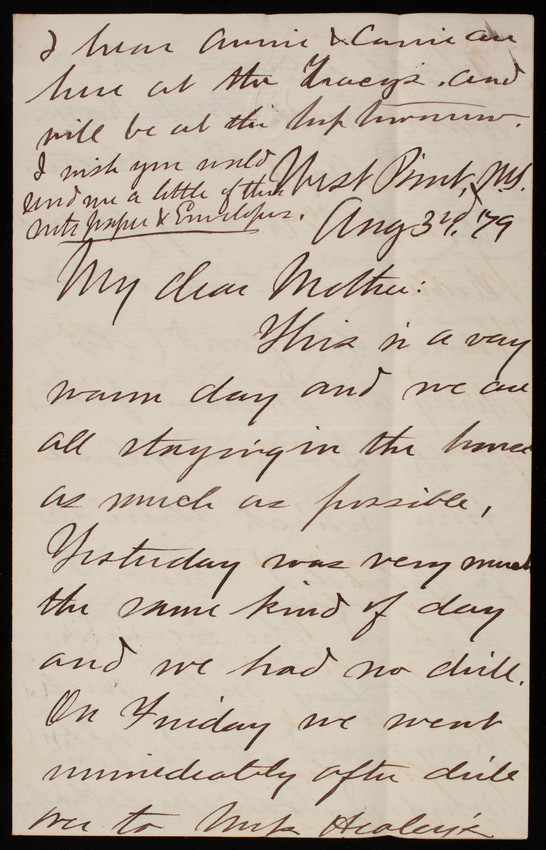 I hear Annie & Carrie are
here at the Tracey's. and
will be at the hop tomorrow.
I wish you would
send me a little of this
note paper & Envelopes.
West Point, NY.
Aug 3rd, '79
My dear Mother:
This is a very
warm day and we are
all staying in the house
as much as possible,
Yesterday was very much
the same kind of day
and we had no drill.
On Friday we went
immediately after drill
over to Healey's